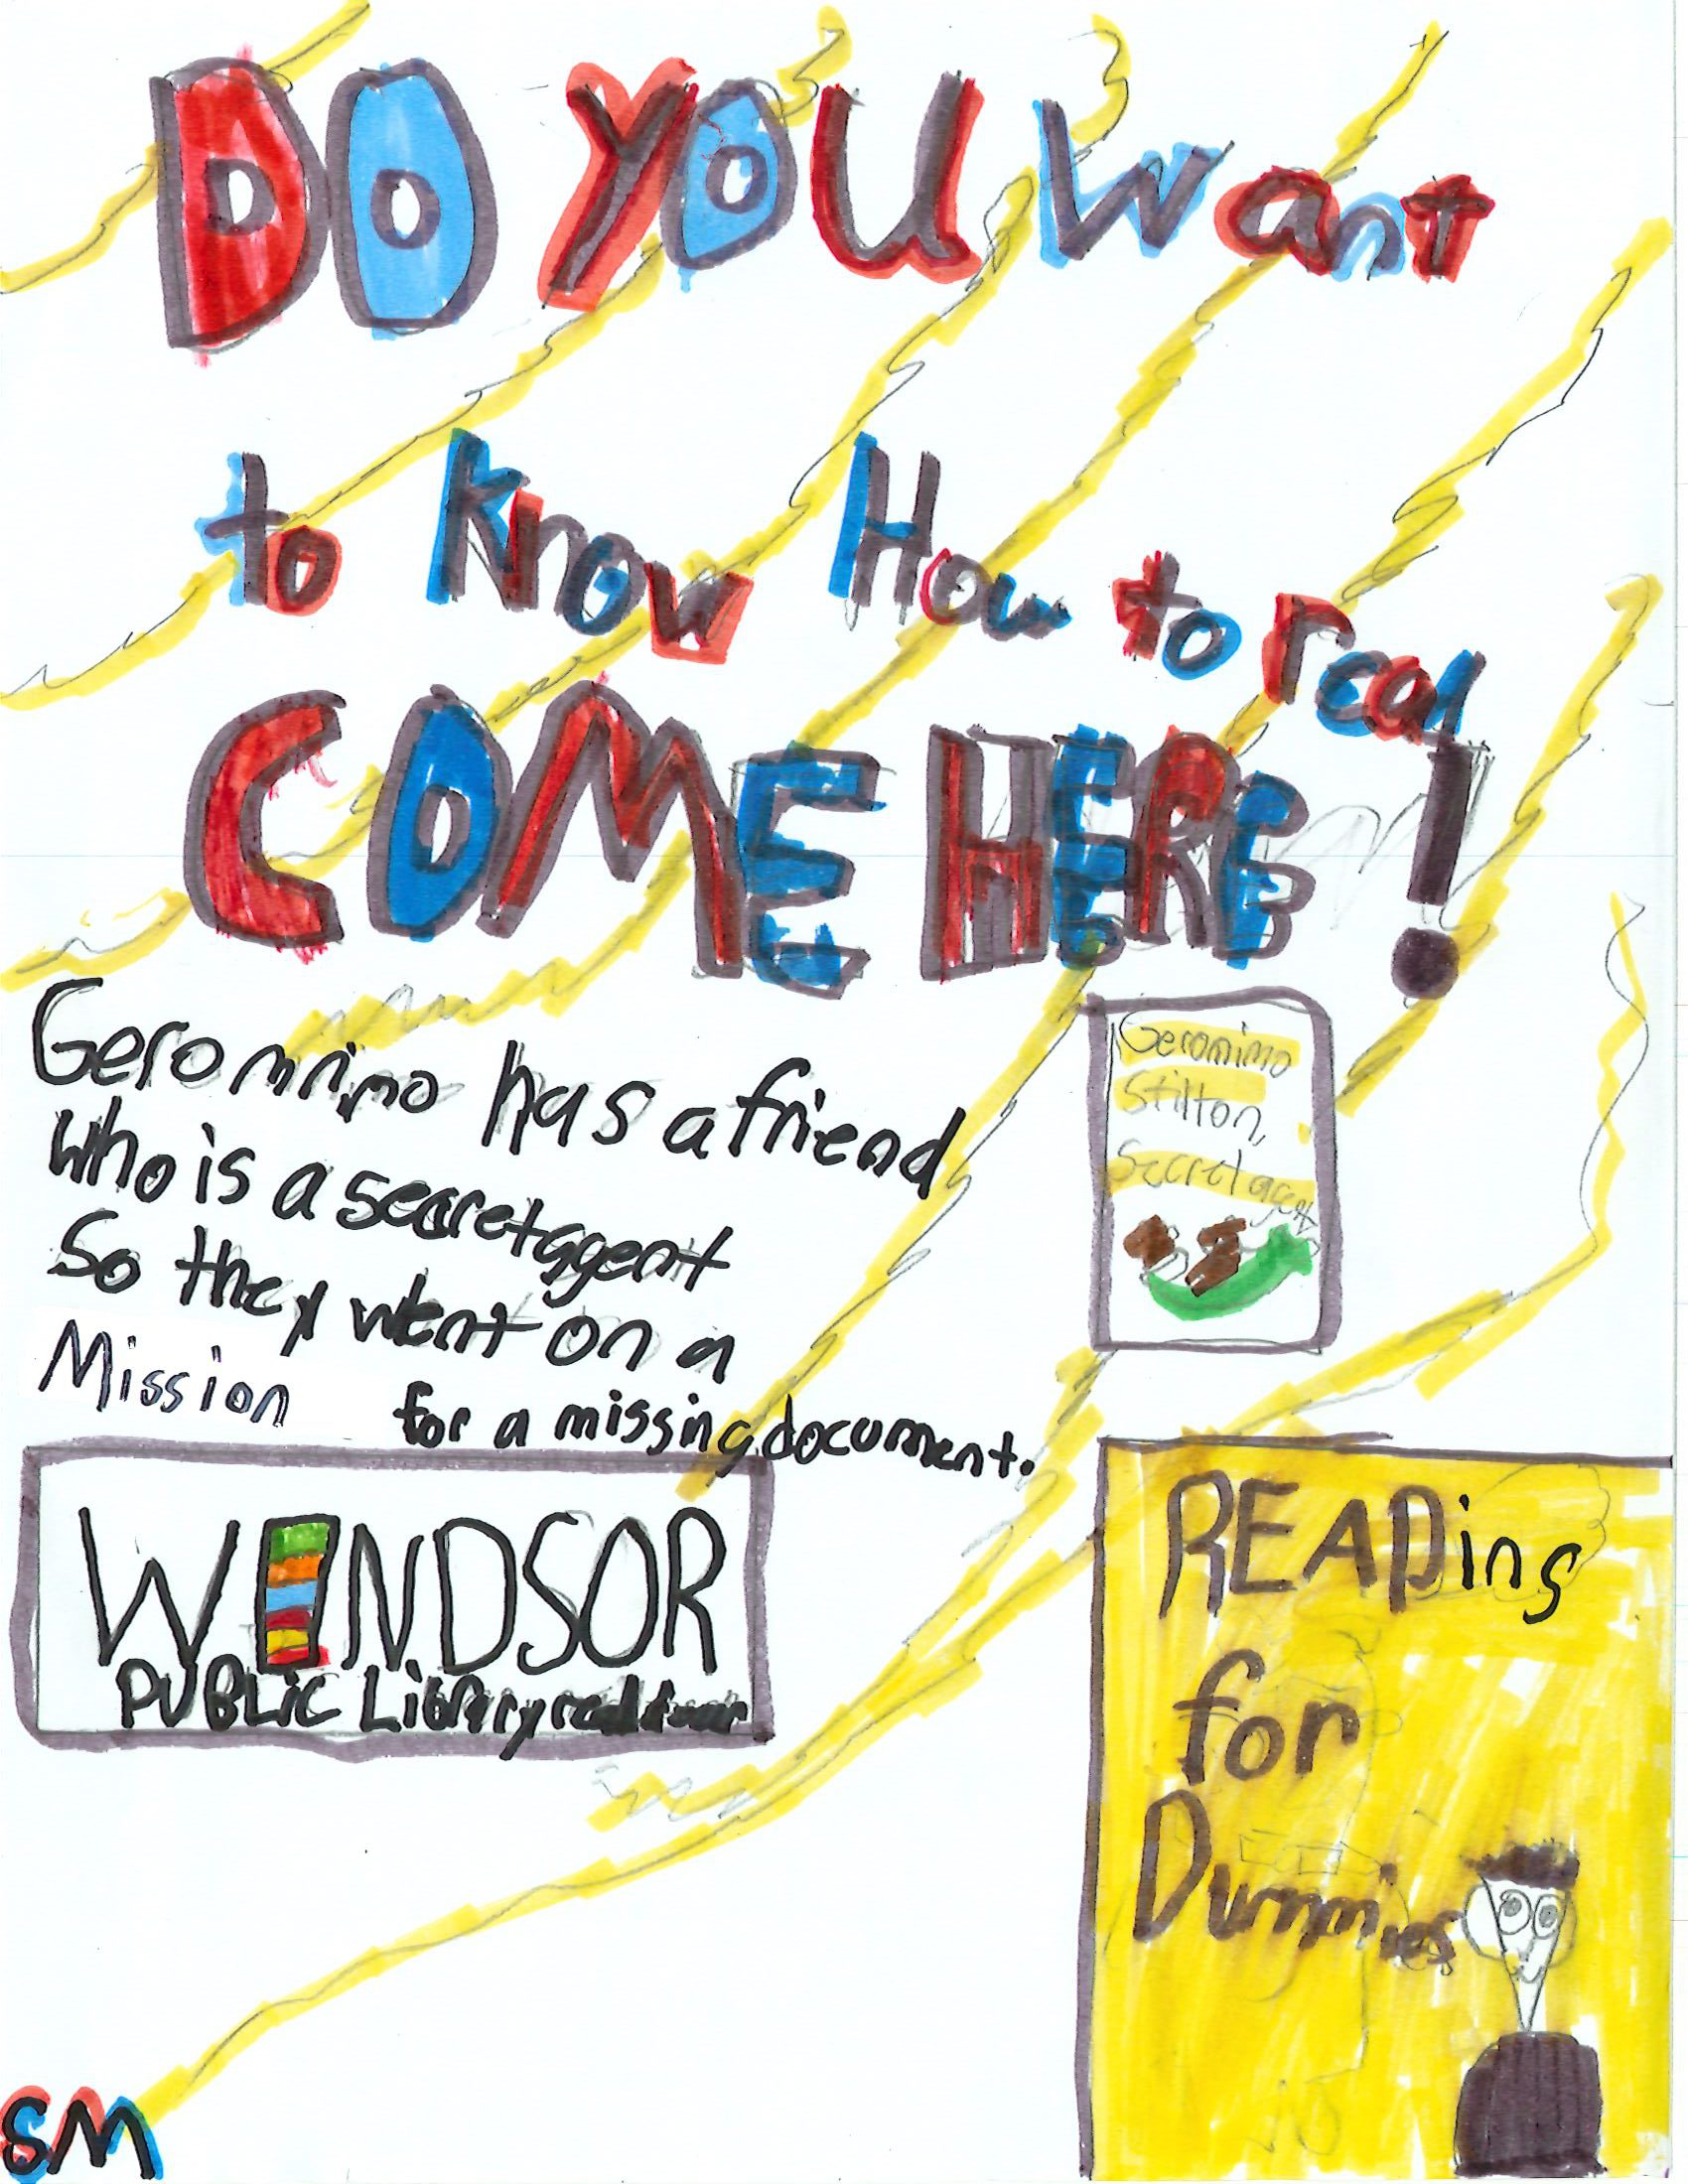 DO YOU Want
to Know How to read
COME HERE!
Geronimo has a friend
who is a secret agent
So they went on a
Mission for a missing document.
Geronimo
Stilton,
Secret agent
WINDSOR
PUBLIC Library
READing
for
Dummies
SM